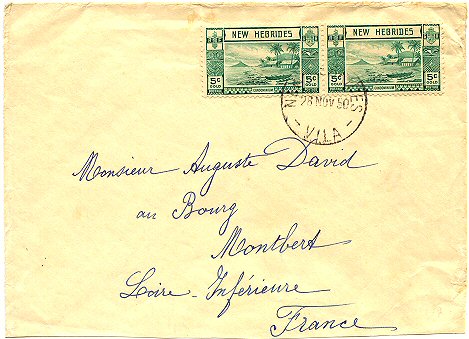 NEW HEBRIDES NEW HEBRIDES
5c GOLD 5c GOLD 5c GOLD 5c GOLD
CONDOMINIUM CONDOMINIUM
28 NOV 50
VILA
Monsieur Auguste David
au Bourg
Montbert
Loire-Inférieure
France